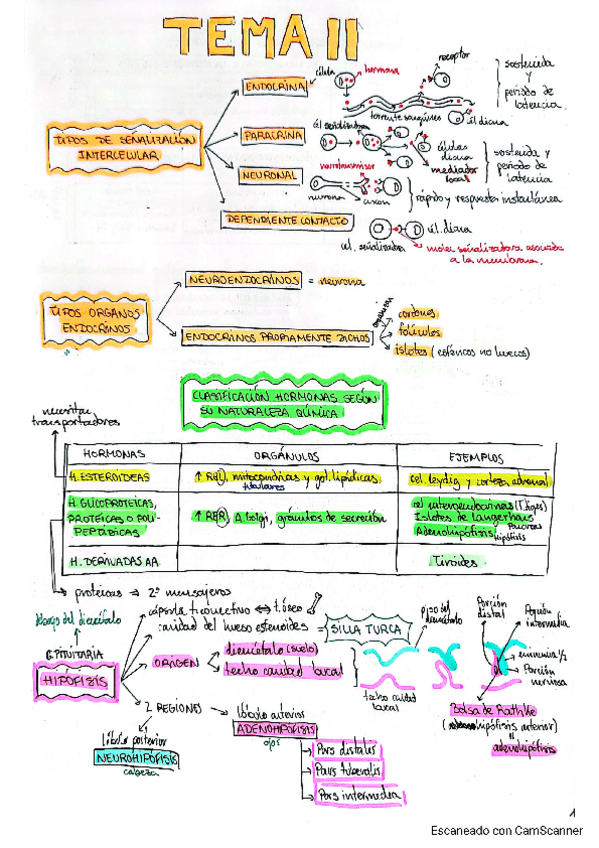 TEMA II
TIPOS DE SEÑALIZACIÓN
INTERCELULAR
ENDOCRINA
célula
hormona
receptor
torrente sanguíneo
cél diana
sostenida
y
periodo de
latencia.
PARACRINA
cél señalizadora
células
diana
mediador
local
sostenida y
periodo de
latencia
NEURONAL
neurotransmisor
neurona
axon
rápido y respuesta instantánea
DEPENDIENTE CONTACTO
cél. diana
cel. señalizadora
molec señalizadora asociada
a la membrana.
TIPOS ÓRGANOS
ENDOCRINOS
NEUROENDOCRINOS = neurona
ENDOCRINOS PROPIAMENTE DICHOS
organizan
cordones
folículos
islotes (esféricos no huecos)
CLASIFICACIÓN HORMONAS SEGÚN
SU NATURALEZA QUÍMICA
necesitan
transportadores
HORMONAS
ORGÁNULOS
EJEMPLOS
H. ESTEROIDEAS
↑ REL, mitocondrias y got. lipídicas
tubulares
cel. leydig y corteza adrenal
H. GLICOPROTEICAS,
PROTÉICAS O POLI-
PEPTÍDICAS
↑ RER, A. Golgi, gránulos de secreción
Islotes de Langerhans
Páncreas
Adenohipófisis
hipófisis
H. DERIVADAS AA
Tiroides
proteínas → 2º mensajeros
debajo del diencéfalo
G. PITUITARIA
HIPÓFISIS
cápsula t. conectivo ↔ t. óseo
cavidad del hueso esfenoides = SILLA TURCA
ORIGEN
diencéfalo (suelo)
techo cavidad bucal
piso del
diencéfalo
techo cavidad
bucal
Porción
distal
Porción
intermedia
eminencia
Porción
nerviosa
Bolsa de Rathke
(hipófisis anterior)
adenohipófisis
2 REGIONES
lóbulo posterior
NEUROHIPÓFISIS
cabeza
lóbulo anterior
ADENOHIPÓFISIS
Pars distalis
Pars tuberalis
Pars intermedia
1
Escaneado con CamScanner